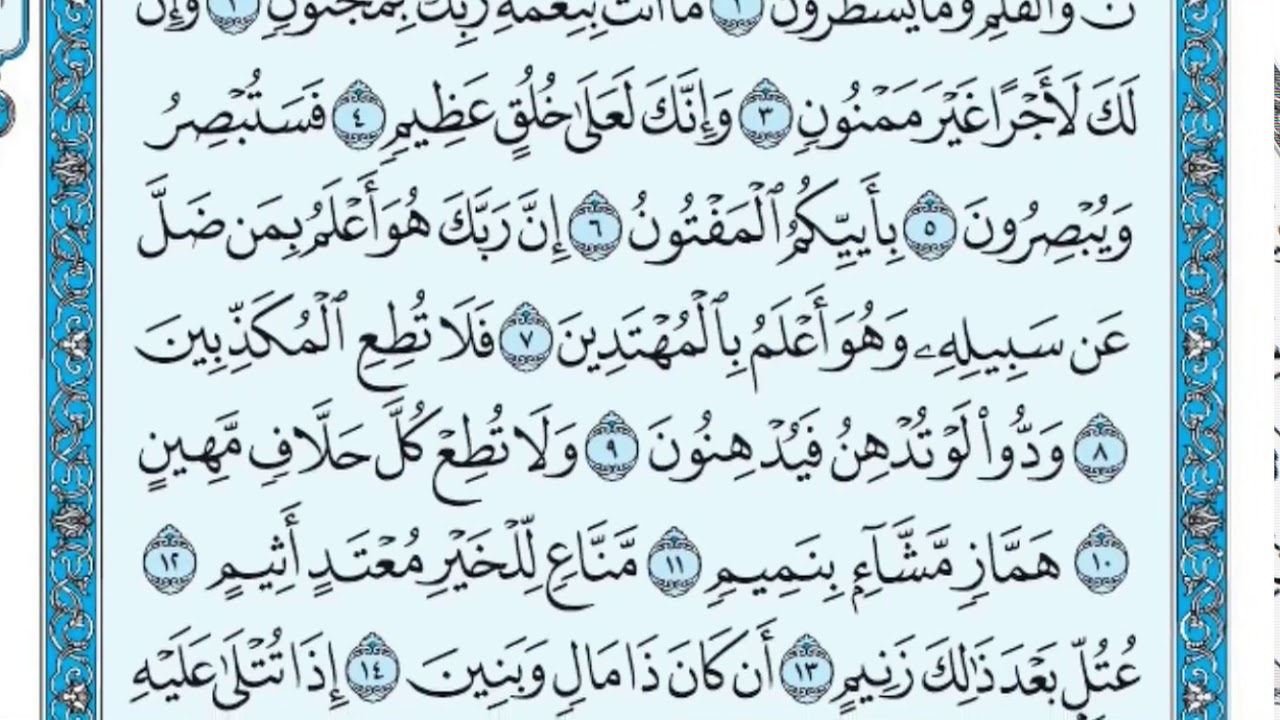 نٓ وَٱلْقَلَمِ وَمَا يَسْطُرُونَ ١ مَآ أَنتَ بِنِعْمَةِ رَبِّكَ بِمَجْنُونٍ ٢ وَإِنَّ
لَكَ لَأَجْرًا غَيْرَ مَمْنُونٍ ٣ وَإِنَّكَ لَعَلَىٰ خُلُقٍ عَظِيمٍ ٤ فَسَتُبْصِرُ
وَيُبْصِرُونَ ٥ بِأَييِّكُمُ ٱلْمَفْتُونُ ٦ إِنَّ رَبَّكَ هُوَ أَعْلَمُ بِمَن ضَلَّ
عَن سَبِيلِهِۦ وَهُوَ أَعْلَمُ بِٱلْمُهْتَدِينَ ٧ فَلَا تُطِعِ ٱلْمُكَذِّبِينَ
٨ وَدُّوا۟ لَوْ تُدْهِنُ فَيُدْهِنُونَ ٩ وَلَا تُطِعْ كُلَّ حَلَّافٍ مَّهِينٍ
١٠ هَمَّازٍ مَّشَّآءٍۭ بِنَمِيمٍ ١١ مَّنَّاعٍ لِّلْخَيْرِ مُعْتَدٍ أَثِيمٍ ١٢
عُتُلٍّۭ بَعْدَ ذَٰلِكَ زَنِيمٍ ١٣ أَن كَانَ ذَا مَالٍ وَبَنِينَ ١٤ إِذَا تُتْلَىٰ عَلَيْهِ